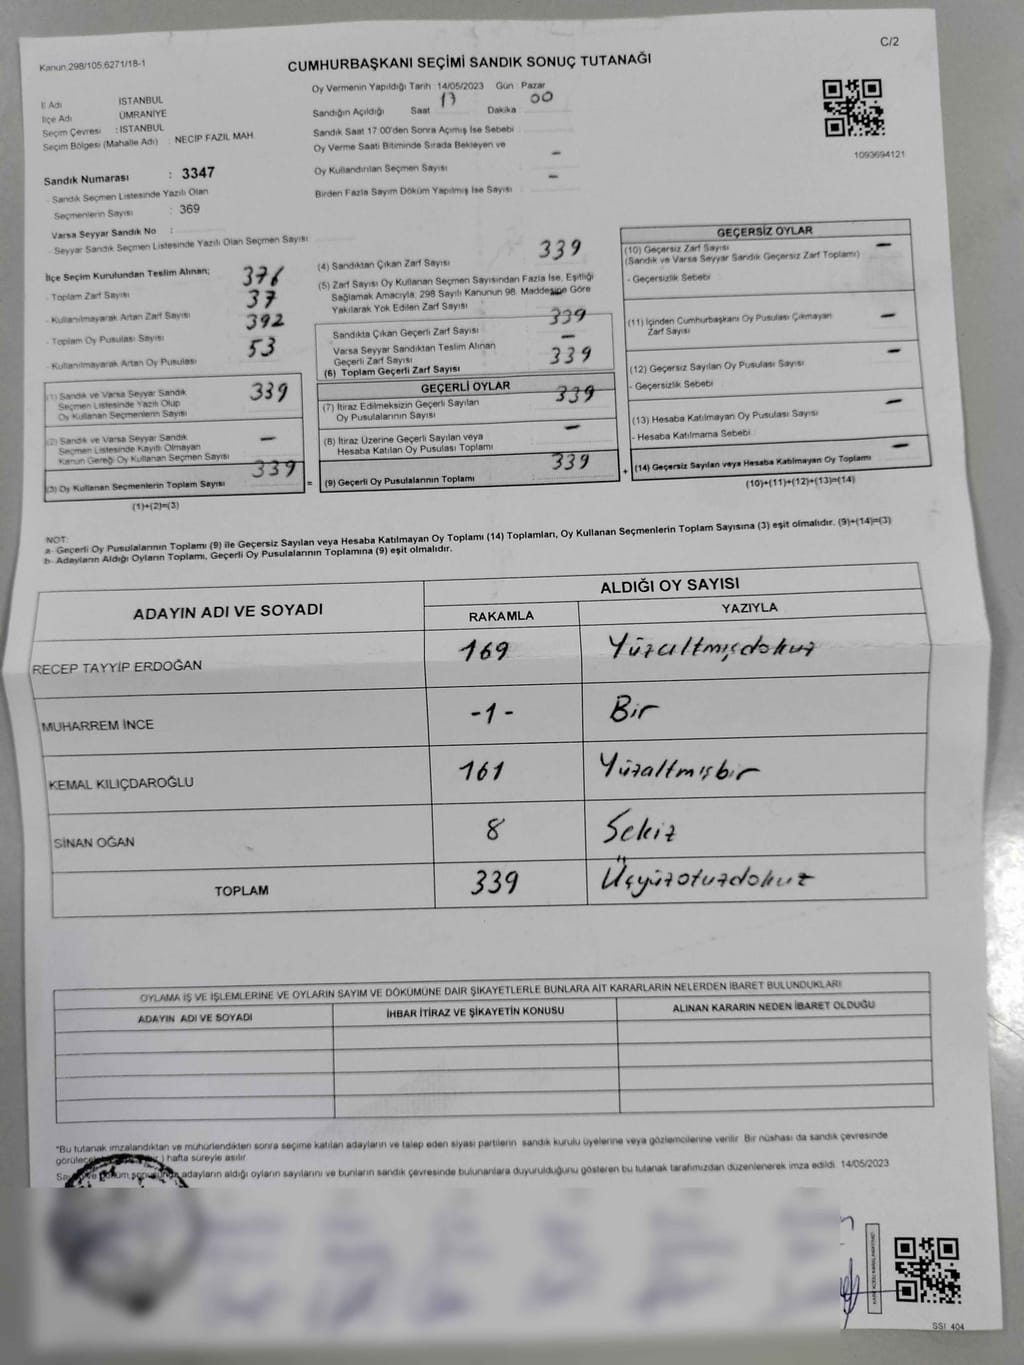 C/2
Kanun.298/105,6271/18-1
CUMHURBAŞKANI SEÇİMİ SANDIK SONUÇ TUTANAĞI
İl Adı İSTANBUL
İlçe Adı ÜMRANİYE
Seçim Çevresi : İSTANBUL
Seçim Bölgesi (Mahalle Adı) : NECİP FAZIL MAH.
Sandık Numarası : 3347
- Sandık Seçmen Listesinde Yazılı Olan
Seçmenlerin Sayısı : 369
Varsa Seyyar Sandık No :
- Seyyar Sandık Seçmen Listesinde Yazılı Olan Seçmen Sayısı
Oy Vermenin Yapıldığı Tarih 14/05/2023 Gün Pazar
Sandığın Açıldığı Saat 17 Dakika 00
Sandık Saat 17:00'den Sonra Açımış İse Sebebi
Oy Verme Saati Bitiminde Sırada Bekleyen ve
Oy Kullandırılan Seçmen Sayısı -
Birden Fazla Sayım Döküm Yapılmış İse Sayısı -
1093694121
İlçe Seçim Kurulundan Teslim Alınan;
- Toplam Zarf Sayısı 376
- Kullanılmayarak Artan Zarf Sayısı 37
- Toplam Oy Pusulası Sayısı 392
- Kullanılmayarak Artan Oy Pusulası 53
(1) Sandık ve Varsa Seyyar Sandık
Seçmen Listesinde Yazılı Olup
Oy Kullanan Seçmenlerin Sayısı 339
(2) Sandık ve Varsa Seyyar Sandık
Seçmen Listesinde Kayıtlı Olmayan
Kanun Gereği Oy Kullanan Seçmen Sayısı -
(3) Oy Kullanan Seçmenlerin Toplam Sayısı 339 =
(1)+(2)=(3)
(4) Sandıktan Çıkan Zarf Sayısı 339
(5) Zarf Sayısı Oy Kullanan Seçmen Sayısından Fazla İse, Eşitliği
Sağlamak Amacıyla; 298 Sayılı Kanunun 98. Maddesine Göre
Yakılarak Yok Edilen Zarf Sayısı -
Sandıkta Çıkan Geçerli Zarf Sayısı 339
Varsa Seyyar Sandıktan Teslim Alınan
Geçerli Zarf Sayısı -
(6) Toplam Geçerli Zarf Sayısı 339
GEÇERLİ OYLAR
(7) İtiraz Edilmeksizin Geçerli Sayılan
Oy Pusulalarının Sayısı 339
(8) İtiraz Üzerine Geçerli Sayılan veya
Hesaba Katılan Oy Pusulası Toplamı -
(9) Geçerli Oy Pusulalarının Toplamı 339 +
GEÇERSİZ OYLAR
(10) Geçersiz Zarf Sayısı -
(Sandık ve Varsa Seyyar Sandık Geçersiz Zarf Toplamı)
- Geçersizlik Sebebi
(11) İçinden Cumhurbaşkanı Oy Pusulası Çıkmayan -
Zarf Sayısı
(12) Geçersiz Sayılan Oy Pusulası Sayısı -
- Geçersizlik Sebebi
(13) Hesaba Katılmayan Oy Pusulası Sayısı -
- Hesaba Katılmama Sebebi
(14) Geçersiz Sayılan veya Hesaba Katılmayan Oy Toplamı -
(10)+(11)+(12)+(13)=(14)
NOT:
a- Geçerli Oy Pusulalarının Toplamı (9) ile Geçersiz Sayılan veya Hesaba Katılmayan Oy Toplamı (14) Toplamları, Oy Kullanan Seçmenlerin Toplam Sayısına (3) eşit olmalıdır. (9)+(14)=(3)
b- Adayların Aldığı Oyların Toplamı, Geçerli Oy Pusulalarının Toplamına (9) eşit olmalıdır.
ADAYIN ADI VE SOYADI ALDIĞI OY SAYISI
RAKAMLA YAZIYLA
RECEP TAYYİP ERDOĞAN 169 Yüzaltmışdokuz
MUHARREM İNCE -1- Bir
KEMAL KILIÇDAROĞLU 161 Yüzaltmışbir
SİNAN OĞAN 8 Sekiz
TOPLAM 339 Üçyüzotuzdokuz
OYLAMA İŞ VE İŞLEMLERİNE VE OYLARIN SAYIM VE DÖKÜMÜNE DAİR ŞİKAYETLERLE BUNLARA AİT KARARLARIN NELERDEN İBARET BULUNDUKLARI
ADAYIN ADI VE SOYADI İHBAR İTİRAZ VE ŞİKAYETİN KONUSU ALINAN KARARIN NEDEN İBARET OLDUĞU
*Bu tutanak imzalandıktan ve mühürlendikten sonra seçime katılan adayların ve talep eden siyasi partilerin sandık kurulu üyelerine veya gözlemcilerine verilir. Bir nüshası da sandık çevresinde
) hafta süreyle asılır.
adayların aldığı oyların sayılarını ve bunların sandık çevresinde bulunanlara duyurulduğunu gösteren bu tutanak tarafımızdan düzenlenerek imza edildi. 14/05/2023
SSİ 404